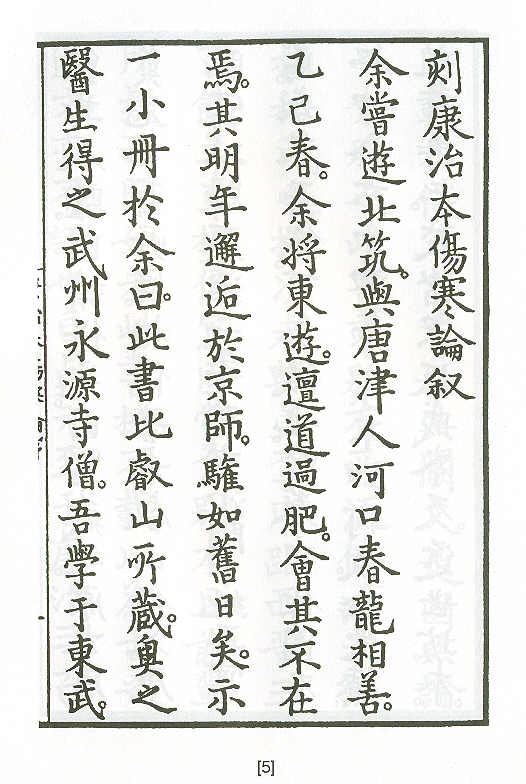 刻康治本傷寒論叙
余嘗遊北筑。與唐津人河口春龍相善。
乙己春。余將東遊。邅道過肥。會其不在
焉。其明年邂逅於京師。驩如舊日矣。示
一小冊於余曰。此書比叡山所藏。奥之
醫生得之武州永源寺僧。吾學于東武。
[5]